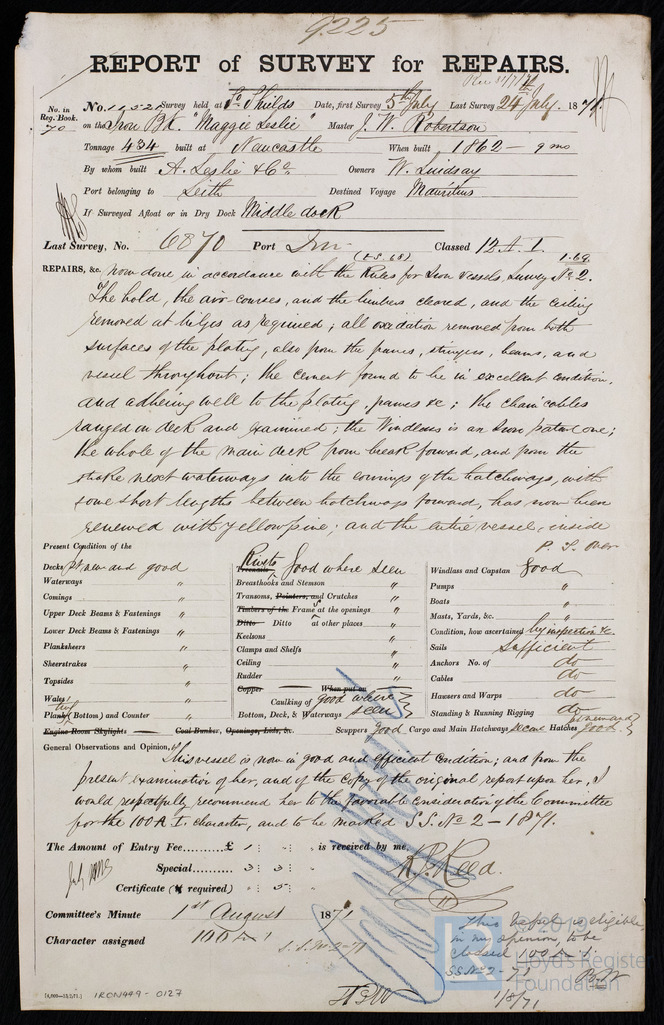 9225
REPORT of SURVEY for REPAIRS.
No. in Reg. Book. 70
No. Survey held at So. Shields Date, first Survey 5th July Last Survey 24th July 1871
on the Iron Bk. "Maggie Leslie" Master J. W. Robertson
Tonnage 434 built at Newcastle When built 1862 - 9 mo
By whom built A. Leslie & Co. Owners W. Lindsay
Port belonging to Leith Destined Voyage Mauritius
If Surveyed Afloat or in Dry Dock Middle dock
Last Survey, No. 6870 Port Classed 12 A.1.
1.69
REPAIRS, &c. now done in accordance with the Rules for Iron Vessels, Survey No. 2.
The hold, the air-courses, and the limbers cleared, and the ceiling
removed at bilges as required; all oxidation removed from both
surfaces of the plating, also from the frames, stringers, beams, and
vessel throughout; the cement found to be in excellent condition,
and adhering well to the plating, frames &c; the chain cables
ranged on deck and examined; the Windlass is an Iron patent one;
the whole of the main deck from break forward, and from the
strake next waterways into the comings of the hatchways, with
some short lengths between hatchways forward, has now been
renewed with yellow pine; and the entire vessel, inside
P. T. Over
Present Condition of the
Decks pt new and good
Waterways "
Comings "
Upper Deck Beams & Fastenings "
Lower Deck Beams & Fastenings "
Planksheers "
Sheerstrakes "
Topsides "
Wales "
Plank (Bottom) and Counter "
Engine Room Skylights — Coal Bunker, Openings, Lids, &c.
Rivets Treenails Good where seen
Breasthooks and Stemson "
Transoms, Pointers, and Crutches "
Timbers of the Frames at the openings "
Ditto Ditto at other places "
Keelsons "
Clamps and Shelfs "
Ceiling "
Rudder "
Copper — When put on
Caulking of Bottom, Deck, & Waterways good where seen
Scuppers good Cargo and Main Hatchways Hatches good
Windlass and Capstan Good
Pumps "
Boats "
Masts, Yards, &c. "
Condition, how ascertained by inspection &c.
Sails Sufficient
Anchors No. of do
Cables do
Hawsers and Warps do
Standing & Running Rigging do
General Observations and Opinion, This vessel is now in good and efficient condition; and from the
present examination of her, and of the copy of the original report upon her, I
would respectfully recommend her to the favorable consideration of the Committee
for the 100 A 1. character, and to be marked S.S. No 2 - 1871.
The Amount of Entry Fee.....£ 1 : " : " is received by me,
Special...... 3 : 3 : "
Certificate (if required) " : 5 : "
Committee's Minute 1st August 1871
Character assigned 100 A 1
S.S. No 2-71
This vessel is eligible
in my opinion, to be
classed 100 A. 1.
S.S. No 2 - 71
1/8/71
IRON449-0127
© 2019
Lloyd's Register
Foundation
LR